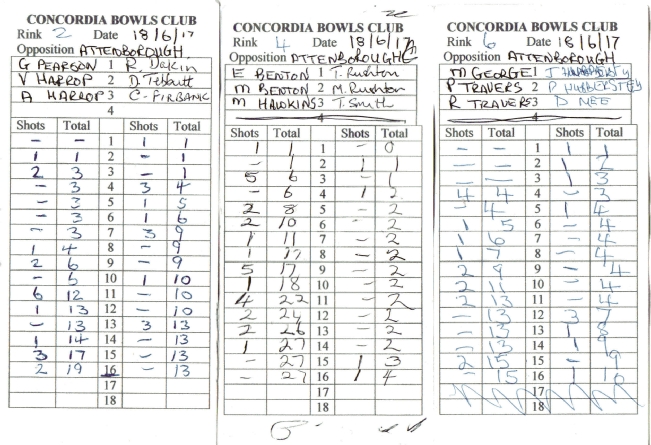 CONCORDIA BOWLS CLUB
Rink 2 Date 18/6/17
Opposition ATTENBOROUGH
G PEARSON 1 R Dakin
V HARROP 2 D. Tebbutt
A HARROP 3 C. FIRBANK
4
Shots Total Shots Total
- - 1 1 1
1 1 2 - 1
2 3 3 - 1
- 3 4 3 4
- 3 5 1 5
- 3 6 1 6
- 3 7 3 9
1 4 8 - 9
2 6 9 - 9
- 6 10 1 10
6 12 11 - 10
1 13 12 - 10
- 13 13 3 13
1 14 14 - 13
3 17 15 - 13
2 19 16 - 13
17
18
CONCORDIA BOWLS CLUB
Rink 4 Date 18/6/17
Opposition ATTENBOROUGH
E BENTON 1 T. Rushton
M BENTON 2 M. Rushton
M HAWKINS 3 T. Smith
4
Shots Total Shots Total
1 1 1 - 0
- 1 2 1 1
5 6 3 - 1
- 6 4 1 2
2 8 5 - 2
2 10 6 - 2
1 11 7 - 2
1 12 8 - 2
5 17 9 - 2
1 18 10 - 2
4 22 11 - 2
2 24 12 - 2
2 26 13 - 2
1 27 14 - 2
- 27 15 1 3
- 27 16 1 4
17
18
CONCORDIA BOWLS CLUB
Rink 6 Date 18/6/17
Opposition ATTENBOROUGH
M GEORGE 1 J
P TRAVERS 2 P HUBBERSTEY
R TRAVERS 3 D NEE
4
Shots Total Shots Total
- - 1 1 1
- - 2 1 2
- - 3 1 3
4 4 4 - 3
- 4 5 1 4
1 5 6 - 4
1 6 7 - 4
1 7 8 - 4
2 9 9 - 4
2 11 10 - 4
2 13 11 - 4
- 13 12 3 7
- 13 13 1 8
- 13 14 1 9
2 15 15 - 9
- 15 16 1 10
17
18